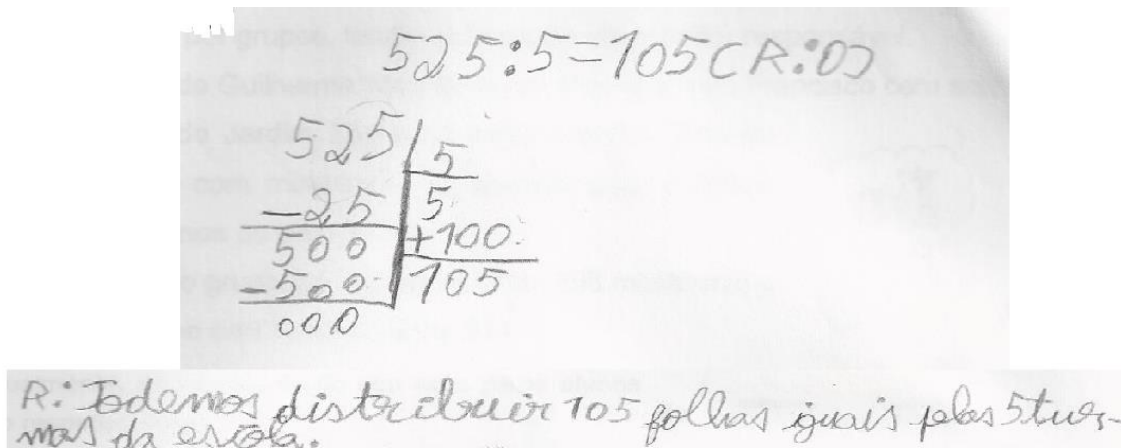 525:5=105(R:0)
525 | 5
-25 | 5
500 | +100
-500 | 105
000
R: Podemos distribuir 105 folhas iguais pelas 5 tur-
mas da escola.